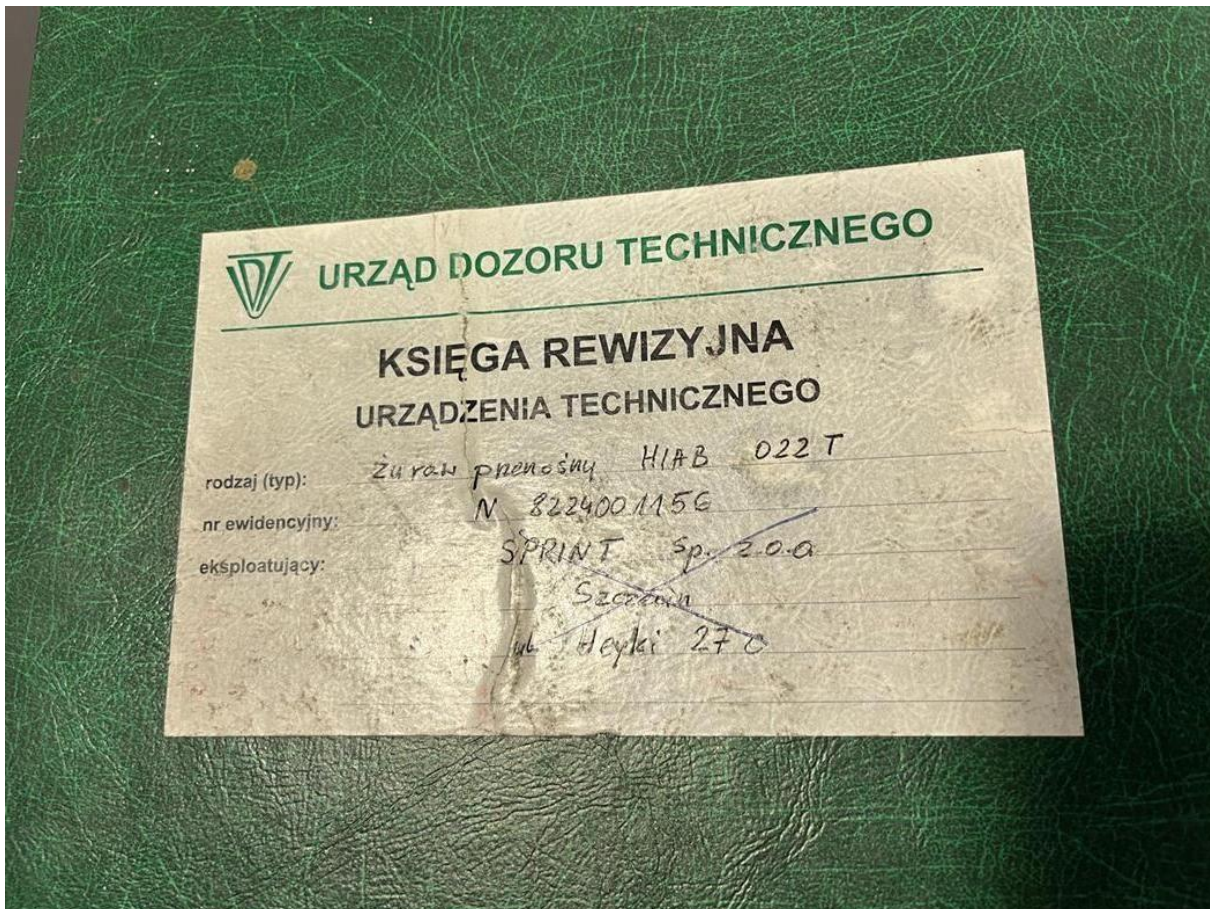 UDT URZĄD DOZORU TECHNICZNEGO
KSIĘGA REWIZYJNA
URZĄDZENIA TECHNICZNEGO
rodzaj (typ): Żuraw przenośny HIAB 022 T
nr ewidencyjny: N 8224001156
eksploatujący: SPRINT Sp. z.o.o
Szczecin
ul. Heyki 27 c